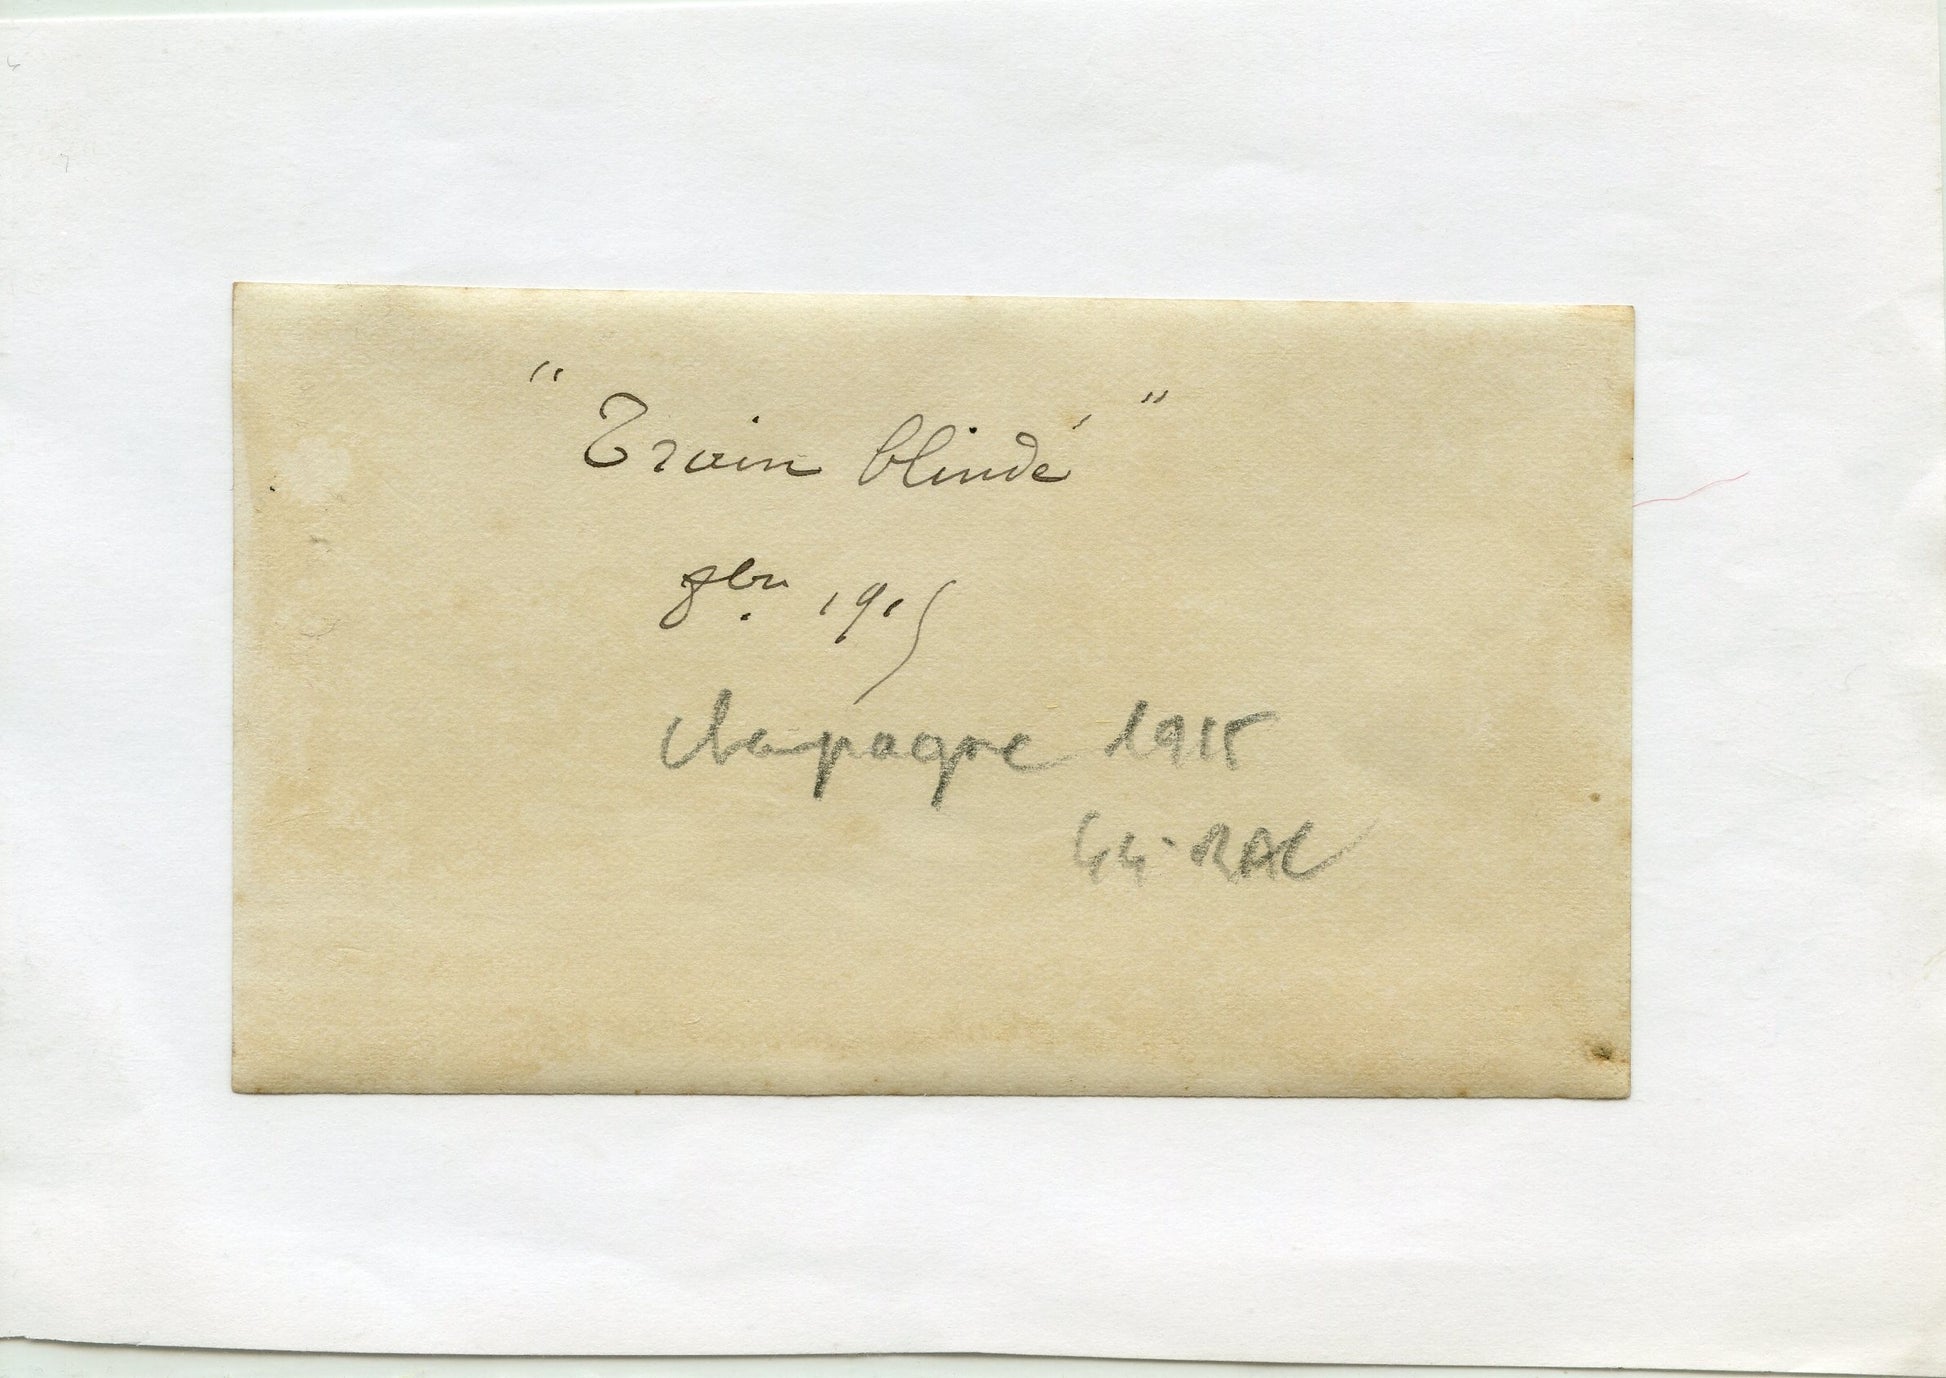 "Train blindé"
8bre 1915
Champagne 1915
44 RAC